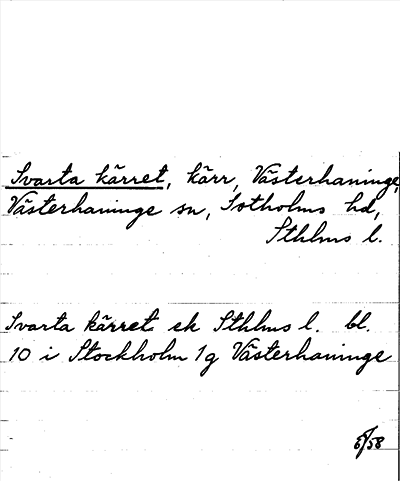 Svarta kärret, kärr, Västerhaninge,
Västerhaninge sn, Sotholms hd,
Sthlms l.
Svarta kärret ek Sthlms l. bl.
10 i Stockholm 1g Västerhaninge
/58